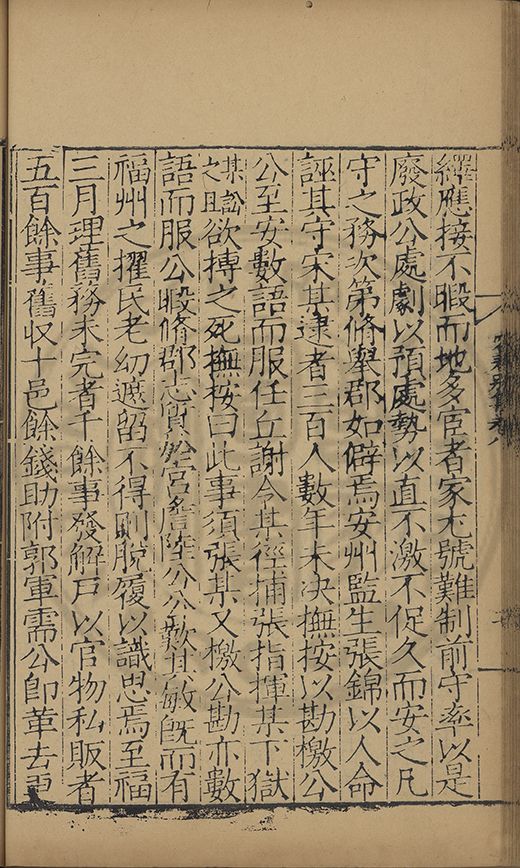 繹應接不暇而地多宦者家尤號難制前守率以是
廢政公處劇以預處勢以直不激不促久而安之凡
守之務次第脩舉郡如僻焉安州監生張錦以人命
誣其守宋某逮者三百人數年未决撫按以勘檄公
公至安數語而服任丘謝令某徑捕張指揮某下獄
某訟之臨欲搏之死撫按曰此事須張某又檄公勘亦數
語而服公暇脩郡志質於宮詹陸公公歎其敏旣而有
福州之擢民老幼遮留不得則脫履以識思焉至福
三月理舊務未完者千餘事發解戶以官物私販者
五百餘事舊収十邑餘錢助附郭軍需公卽革去更